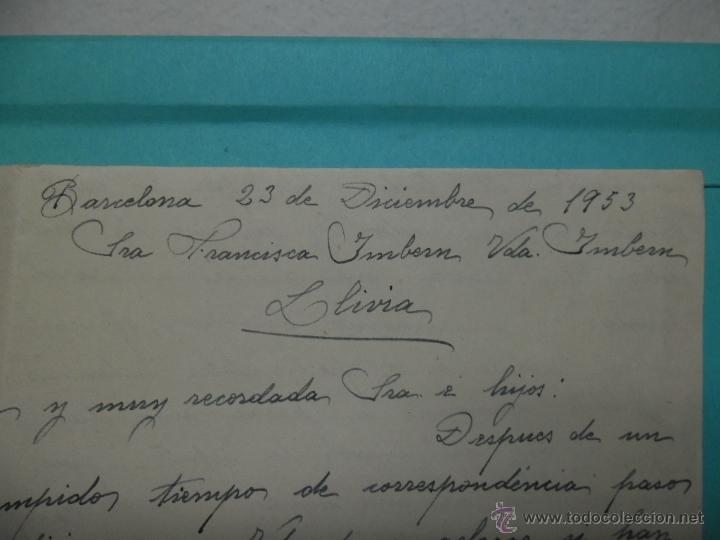 Barcelona 23 de Diciembre de 1953
Sra Francisca Imbern Vda. Imbern
Llivia
y muy recordada Sra. é hijos:
Despues de un
mpido tiempo de correspondéncia paso
y han
todocoleccion
© TODOCOLECCION.NET